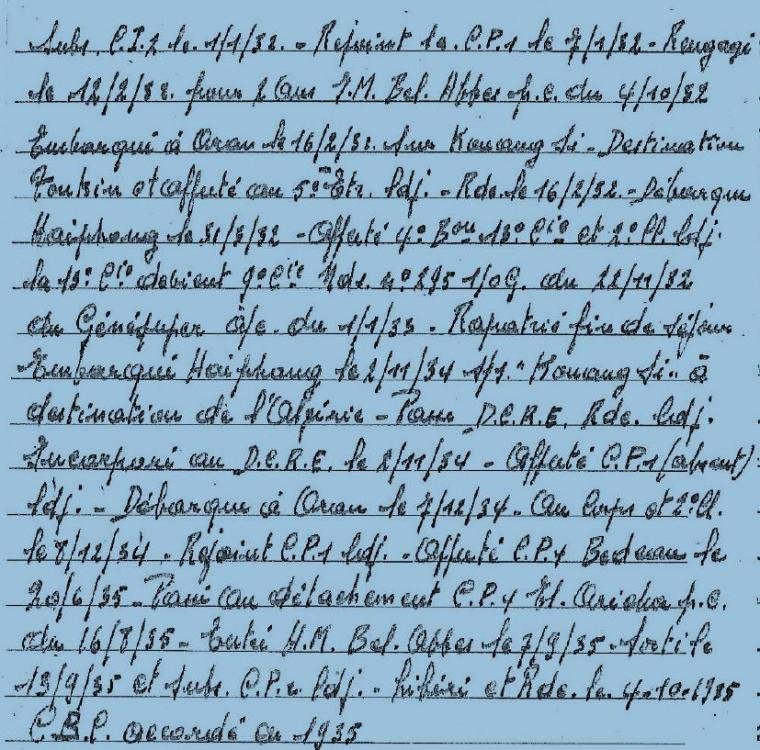 Subs. C.I.2 le 1/1/32. - Rejoint la C.P.1 le 7/1/32 - Rengagé
le 12/2/32. pour 2 ans I.M. Bel. Abbes p.c. du 4/10/32
Embarqué à Oran le 16/2/32. sur Kouang Si - Destination
Tonkin et affecté au 5° Etr. ldj. - Rdc. le 16/2/32. - Débarqué
Haiphong le 31/3/32 - Affecté 4° Bon 13° Cie et 2° Cl. ldj.
la 13° Cie devient 9° Cie Nds. n° 295 1/0G. du 22/11/32
du Génésuper à/c. du 1/1/33 - Rapatrié fin de séjour
Embarqué Haiphong le 2/11/34 s/s. "Kouang Si" à
destination de l'Algérie - Passe D.C.R.E. Rdc. ldj.
Incorporé au D.C.R.E. le 2/11/34 - Affecté C.P.1 (absent)
ldj. - Débarqué à Oran le 7/12/34 - Au Corps et 2° Cl.
le 8/12/34 - Rejoint C.P.1 ldj. - Affecté C.P.4 Bedeau le
20/6/35 - Passé au détachement C.P.4 El. Aricha p.c.
du 16/8/35 - Entré H.M. Bel. Abbes le 7/9/35 - Sorti le
13/9/35 et subs. C.P.2 ldj. - Libéré et Rdc. le 4-10-1935
C.B.C. accordé en 1935